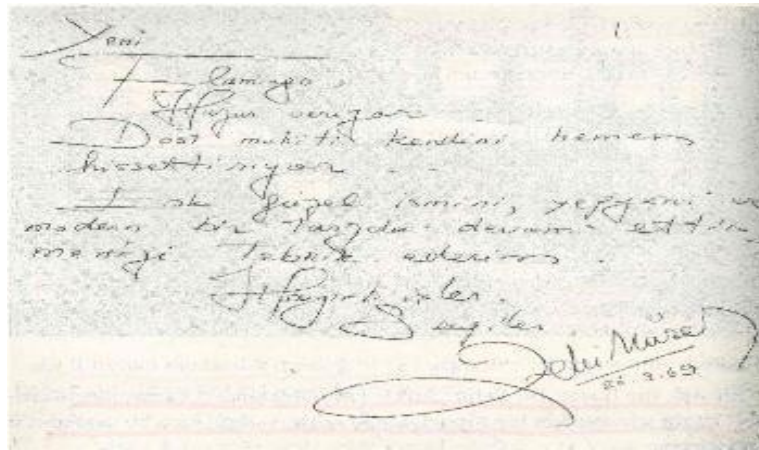 1
Yeni
Flamingo,
Huzur veriyor
Dost muhitin kendini hemen
hissettiriyor...
İlk güzel ismini, yepyeni ve
modern bir tarzda devam ettir-
menizi tebrik ederim.
Sevgiler
Zeki Müren
9.69